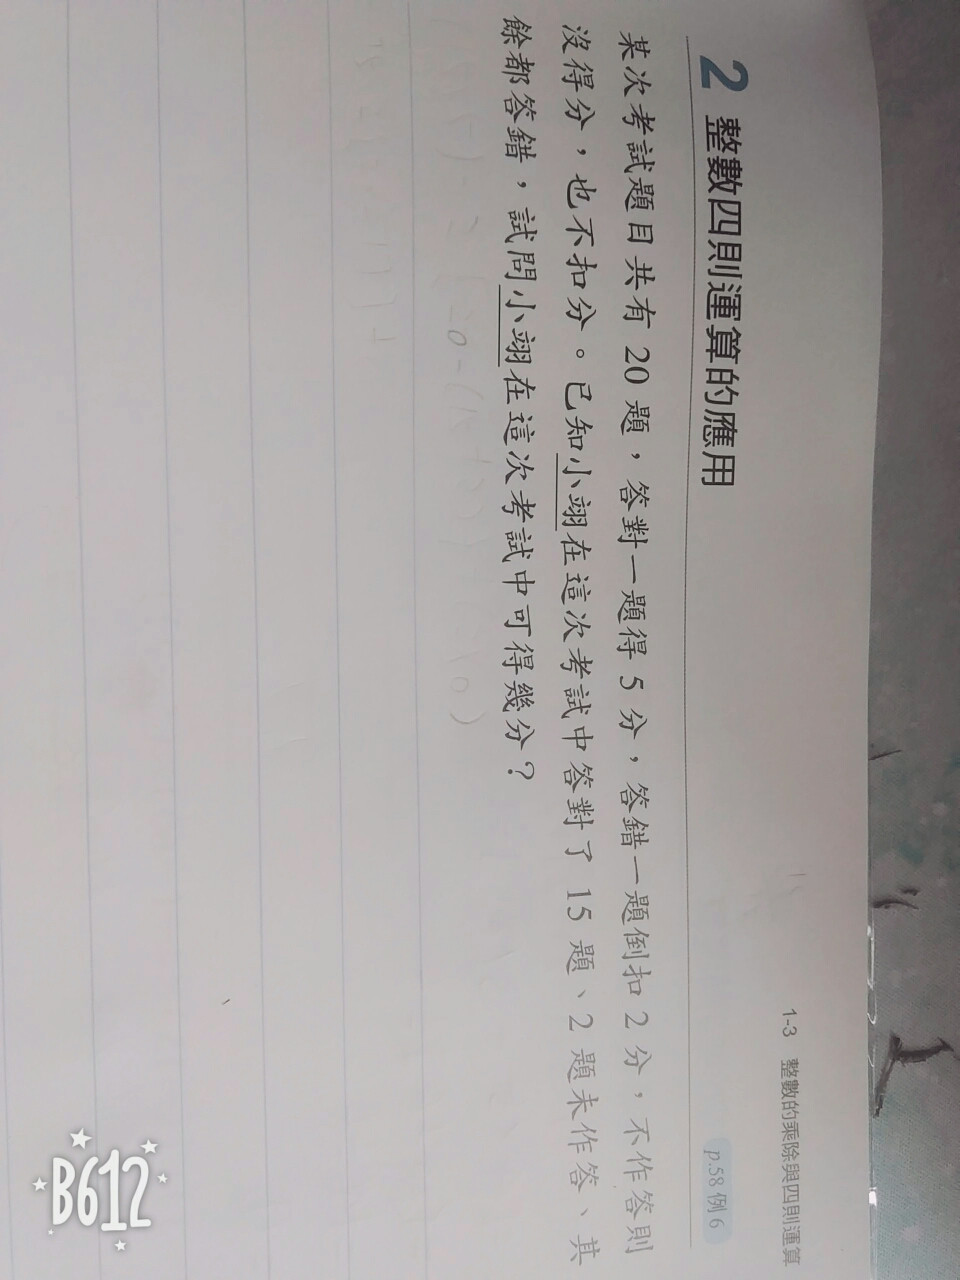 1-3 整數的乘除與四則運算
2 整數四則運算的應用
p.58 例 6
某次考試題目共有 20 題，答對一題得 5 分，答錯一題倒扣 2 分，不作答則
沒得分，也不扣分。已知小翊在這次考試中答對了 15 題、2 題未作答、其
餘都答錯，試問小翊在這次考試中可得幾分？
B612